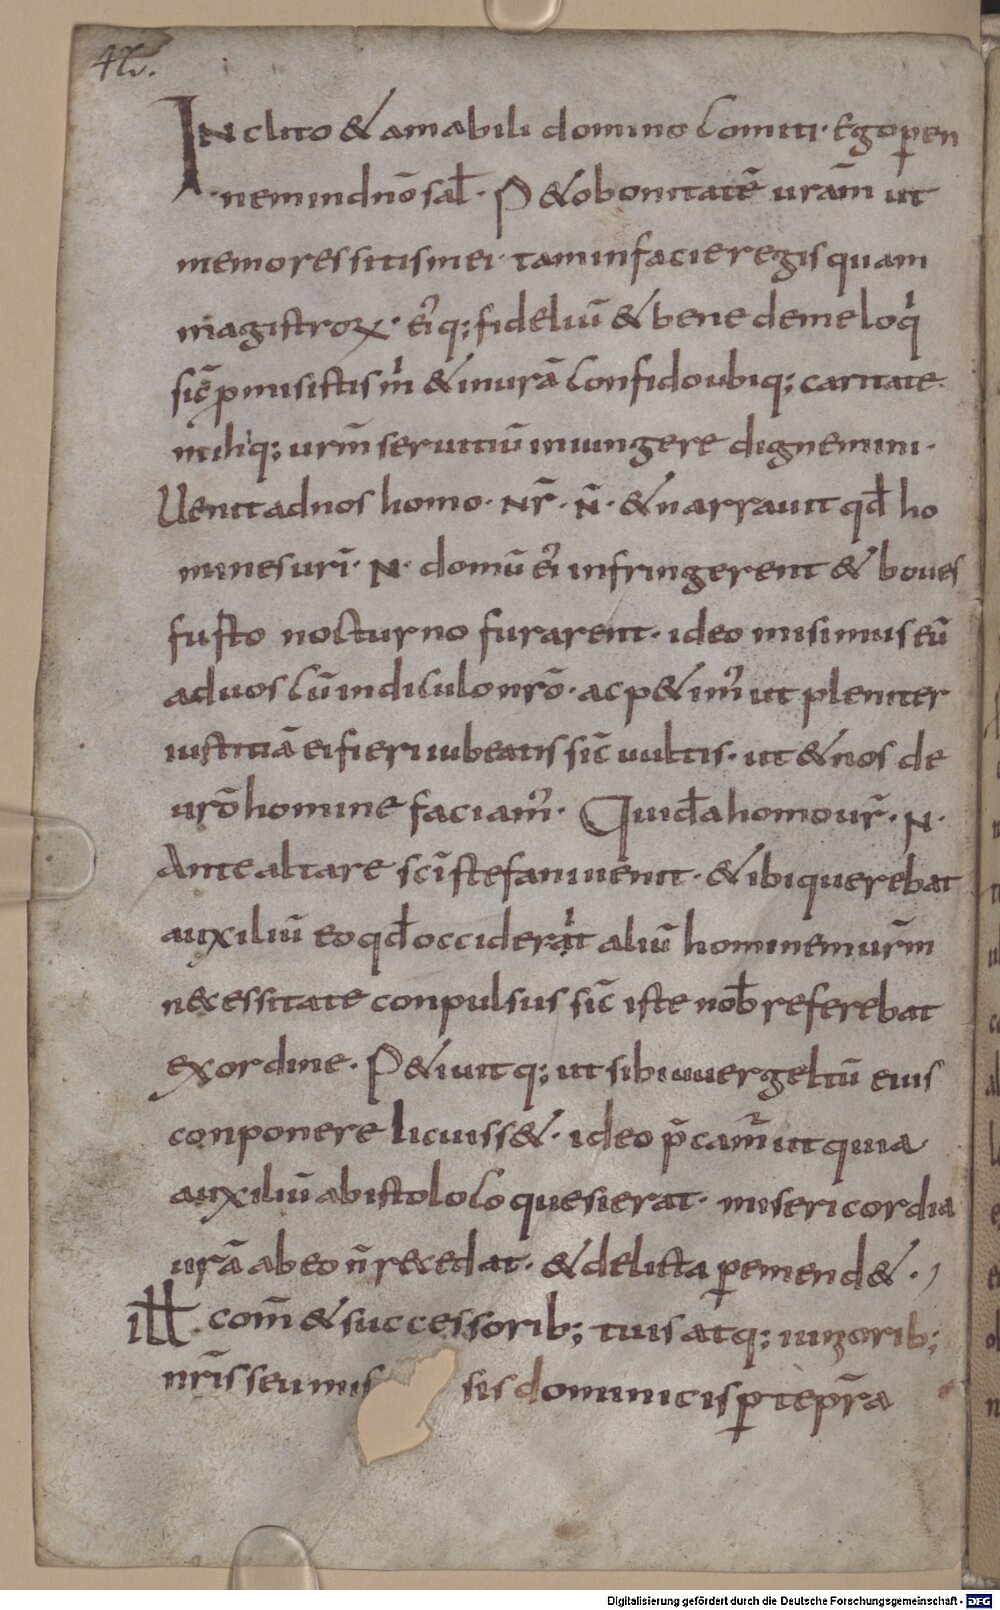 42v.
INclito & amabili domino comiti· Ego per en
·nem in dn̄o sal̄· P&o bonitatē uram̄ ut
memores sitis mei· tam in facie regis quam
magistroꝝ· eiq; fideliū & bene de me loq̇
sic̄ p̱misistis m̄ & in urā confido ubiq; caritate·
mihiq; urm̄ seruitiū iniungere dignemini·
Uenit ad nos homo· nr̄· n̄· & narrauit qd̄ ho
mines uri· N· domū ei infringerent & boues
fusto nocturno furarent· ideo misimus eū
ad uos cū indiculo nrō· ac p&im̄ ut pleniter
iustitiā ei fieri iubeatis sic̄ uultis· ut & nos de
urō homine faciam̄· Quidā homo ur̄· N·
Ante altare sc̄i stefani uenit· & ibi querebat
auxiliū eo qd̄ occiderat aliū hominem urm̄
necessitate conpulsus sic̄ iste nob̄ referebat
ex ordine· P&iuitq; ut sibi uuergeltū eius
conponere licuiss&· ideo p̄cam̄ ut quia
auxiliū ab isto loco quesierat· misericordia
urā ab eo n̄ recedat· & delicta p̱ emend&·,
ill com̄ & successorib; tuis atq; iunorib;
nr̄is seu mis sis dominicis p̱ te pr̄a
Digitalisierung gefördert durch die Deutsche Forschungsgemeinschaft - DFG